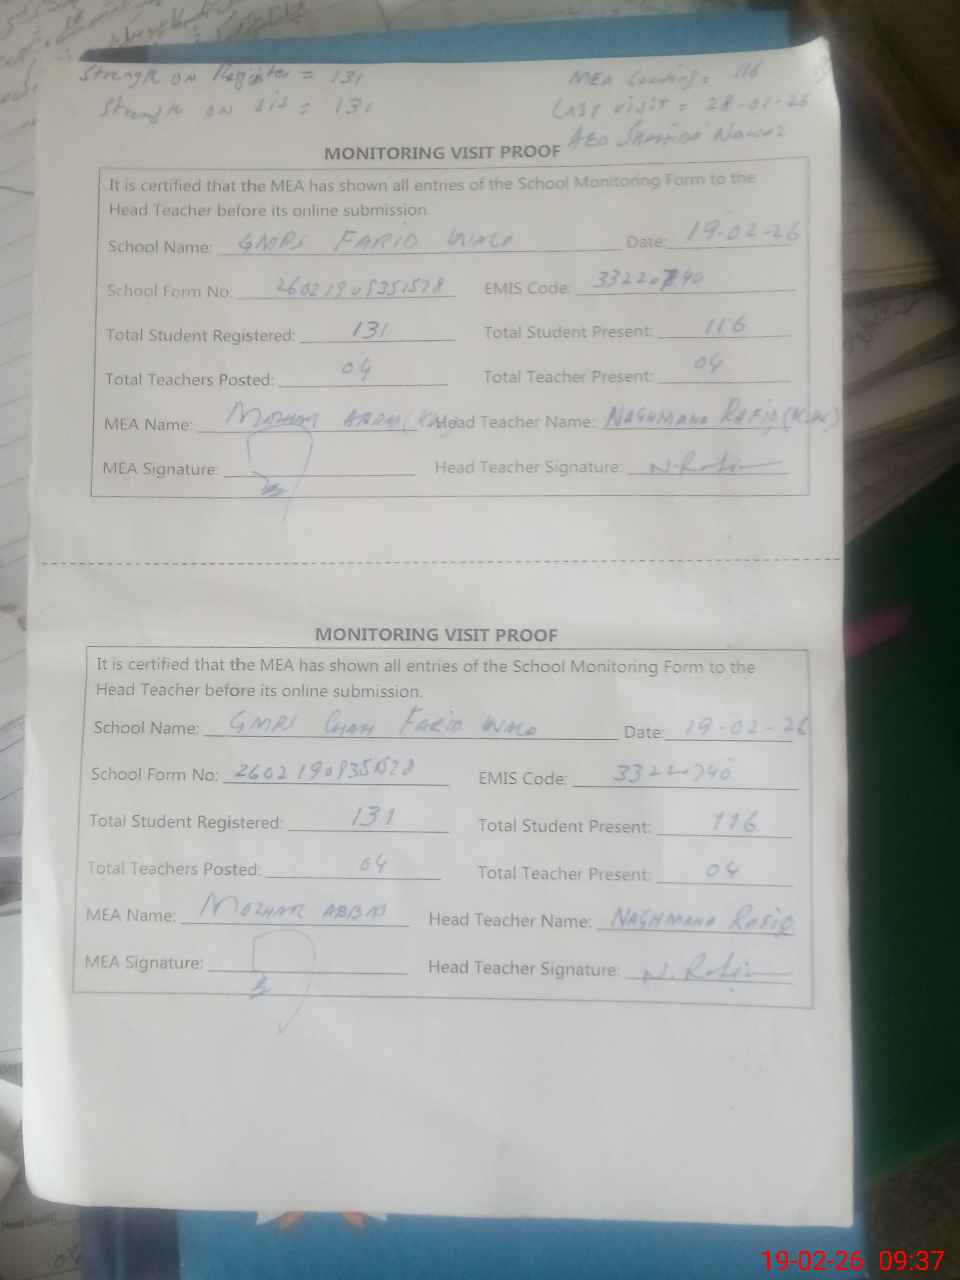 Strength on Register = 131
MEA Counting = 116
Strength on SIS = 131
Last visit = 28-01-26
AEO Nawaz
MONITORING VISIT PROOF
It is certified that the MEA has shown all entries of the School Monitoring Form to the
Head Teacher before its online submission.
School Name: GMPS FARID WALA Date: 19-02-26
School Form No: EMIS Code: 33220740
Total Student Registered: 131 Total Student Present: 116
Total Teachers Posted: 04 Total Teacher Present: 04
MEA Name: MAZHAR ABBAS Head Teacher Name: NAGHMANA RAFIQ
MEA Signature: Head Teacher Signature: N.Rafiq
MONITORING VISIT PROOF
It is certified that the MEA has shown all entries of the School Monitoring Form to the
Head Teacher before its online submission.
School Name: GMPS CHAH FARID WALA Date: 19-02-26
School Form No: EMIS Code: 33220740
Total Student Registered: 131 Total Student Present: 116
Total Teachers Posted: 04 Total Teacher Present: 04
MEA Name: MAZHAR ABBAS Head Teacher Name: NAGHMANA RAFIQ
MEA Signature: Head Teacher Signature: N.Rafiq
19-02-26 09:37